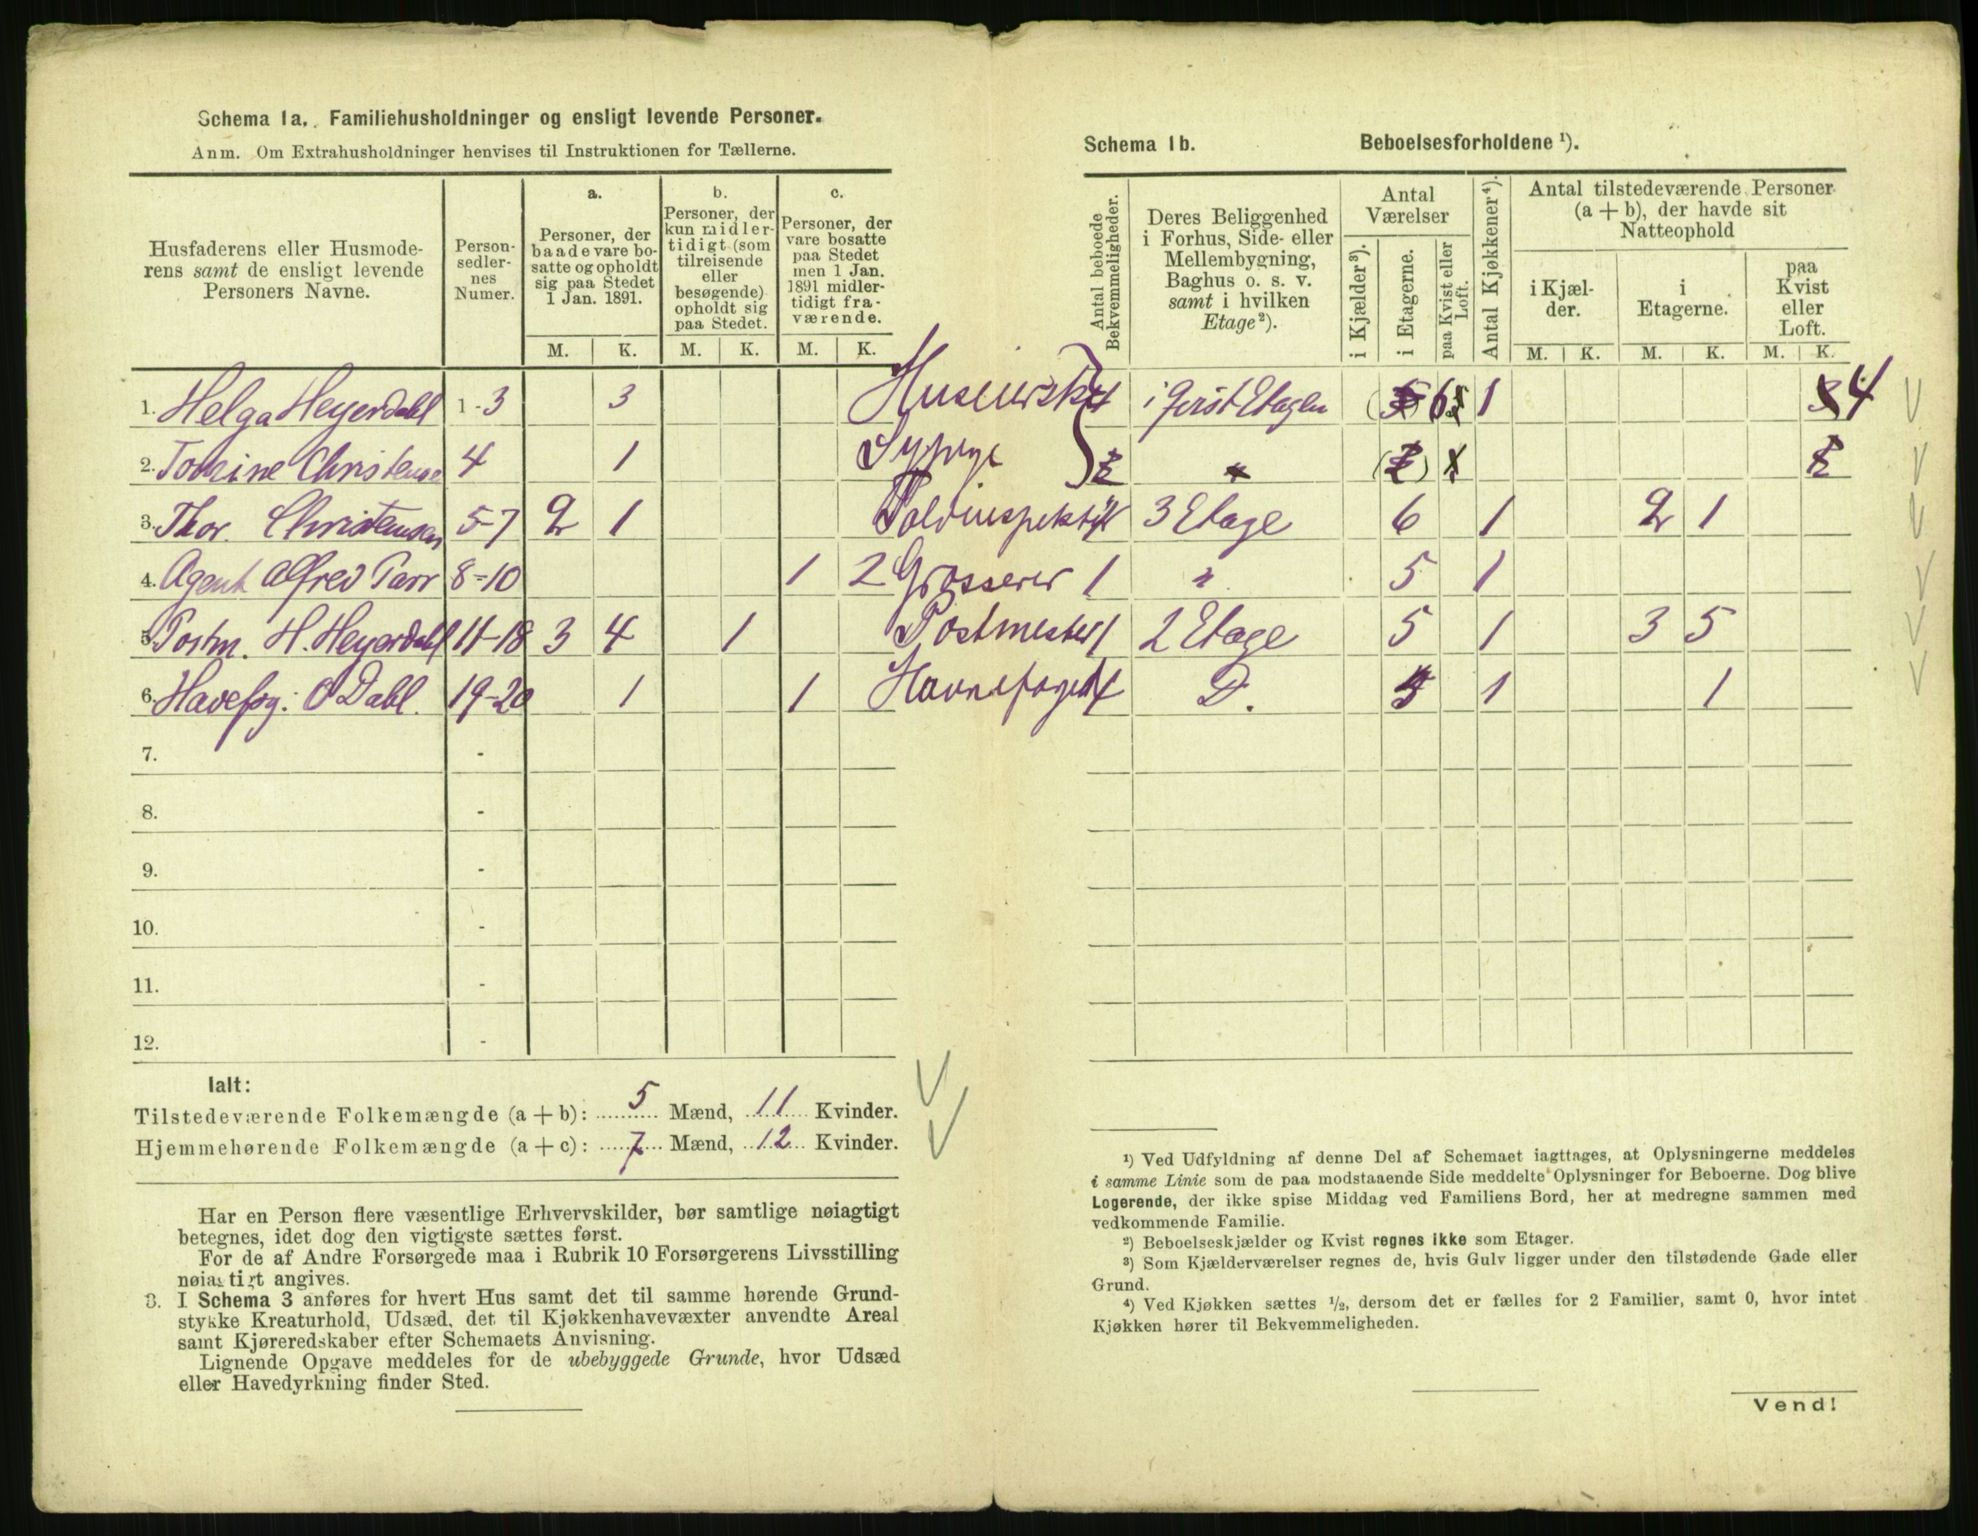 Schema 1a. Familiehusholdninger og ensligt levende Personer.
Anm. Om Extrahusholdninger henvises til Instruktionen for Tællerne.
Husfaderens eller Husmoderens samt de ensligt levende Personers Navne.
Personsedlernes Numer.
a.
Personer, der baade vare bosatte og opholdt sig paa Stedet 1 Jan. 1891.
b.
Personer, der kun midlertidigt (som tilreisende eller besøgende) opholdt sig paa Stedet.
c.
Personer, der vare bosatte paa Stedet men 1 Jan. 1891 midlertidigt fraværende.
M. K. M. K. M. K.
1. Helga Heyerdahl 1-3 3
2. Christense 4 1
3. Thor. Christensen 5-7 2 1
4. Agent Alfred Parr 8-10 1 2 Grosserer
5. Postm. H. Heyerdahl 11-18 3 4 1 Postmester
6. Havefog: O Dahl. 19-20 1 1 Havnefoged
7. -
8. -
9. -
10. -
11. -
12. -
Ialt:
Tilstedeværende Folkemængde (a + b): 5 Mænd, 11 Kvinder.
Hjemmehørende Folkemængde (a + c): 7 Mænd, 12 Kvinder.
Har en Person flere væsentlige Erhvervskilder, bør samtlige nøiagtigt
betegnes, idet dog den vigtigste sættes først.
For de af Andre Forsørgede maa i Rubrik 10 Forsørgerens Livsstilling
nøiagtigt angives.
3. I Schema 3 anføres for hvert Hus samt det til samme hørende Grund-
stykke Kreaturhold, Udsæd, det til Kjøkkenhavevæxter anvendte Areal
samt Kjøreredskaber efter Schemaets Anvisning.
Lignende Opgave meddeles for de ubebyggede Grunde, hvor Udsæd
eller Havedyrkning finder Sted.
Schema 1b. Beboelsesforholdene ¹).
Antal beboede Bekvemmeligheder.
Deres Beliggenhed i Forhus, Side- eller Mellembygning, Baghus o. s. v. samt i hvilken Etage²).
Antal Værelser
i Kjælder³).
i Etagerne.
paa Kvist eller Loft.
Antal Kjøkkener⁴).
Antal tilstedeværende Personer (a + b), der havde sit Natteophold
i Kjælder.
i Etagerne.
paa Kvist eller Loft.
M. K. M. K. M. K.
i første Etagen 6 1 4
3 Etage 6 1 2 1
1 " 5 1
1 2 Etage 5 1 3 5
D. 1 1
¹) Ved Udfyldning af denne Del af Schemaet iagttages, at Oplysningerne meddeles
i samme Linie som de paa modstaaende Side meddelte Oplysninger for Beboerne. Dog blive
Logerende, der ikke spise Middag ved Familiens Bord, her at medregne sammen med
vedkommende Familie.
²) Beboelseskjælder og Kvist regnes ikke som Etager.
³) Som Kjælderværelser regnes de, hvis Gulv ligger under den tilstødende Gade eller
Grund.
⁴) Ved Kjøkken sættes ½, dersom det er fælles for 2 Familier, samt 0, hvor intet
Kjøkken hører til Bekvemmeligheden.
Vend!